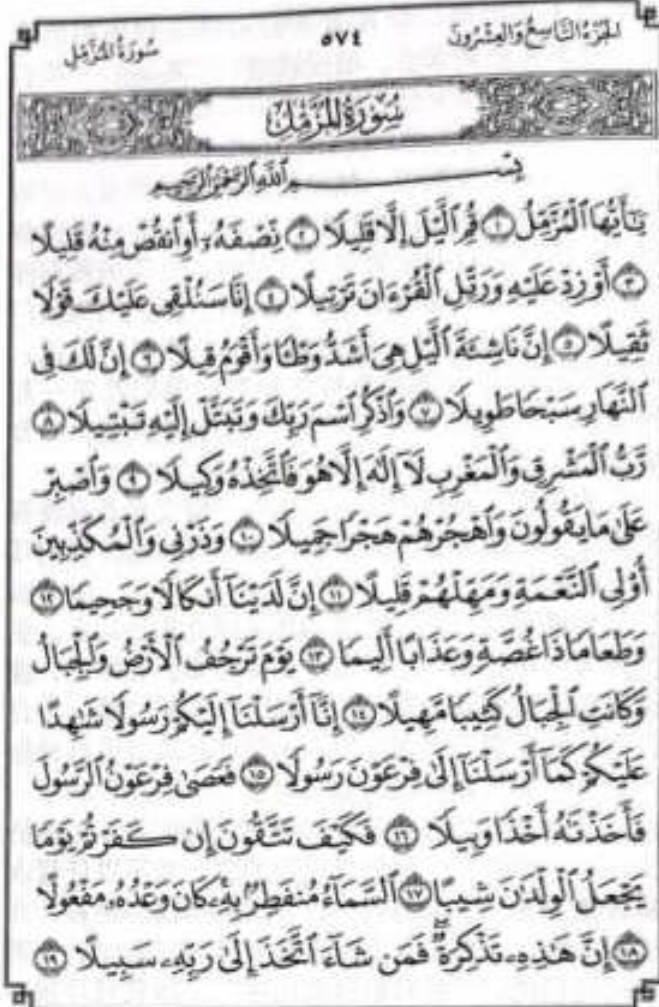 الجزء التاسع والعشرون ٥٧٤ سورة المزمل
سُورَةُ المُزَّمِّلِ
بِسْمِ اللَّهِ الرَّحْمَٰنِ الرَّحِيمِ
يَٰٓأَيُّهَا ٱلْمُزَّمِّلُ ١ قُمِ ٱلَّيْلَ إِلَّا قَلِيلًا ٢ نِّصْفَهُۥٓ أَوِ ٱنقُصْ مِنْهُ قَلِيلًا
٣ أَوْ زِدْ عَلَيْهِ وَرَتِّلِ ٱلْقُرْءَانَ تَرْتِيلًا ٤ إِنَّا سَنُلْقِى عَلَيْكَ قَوْلًا
ثَقِيلًا ٥ إِنَّ نَاشِئَةَ ٱلَّيْلِ هِىَ أَشَدُّ وَطْـًٔا وَأَقْوَمُ قِيلًا ٦ إِنَّ لَكَ فِى
ٱلنَّهَارِ سَبْحًا طَوِيلًا ٧ وَٱذْكُرِ ٱسْمَ رَبِّكَ وَتَبَتَّلْ إِلَيْهِ تَبْتِيلًا ٨
رَّبُّ ٱلْمَشْرِقِ وَٱلْمَغْرِبِ لَآ إِلَٰهَ إِلَّا هُوَ فَٱتَّخِذْهُ وَكِيلًا ٩ وَٱصْبِرْ
عَلَىٰ مَا يَقُولُونَ وَٱهْجُرْهُمْ هَجْرًا جَمِيلًا ١٠ وَذَرْنِى وَٱلْمُكَذِّبِينَ
أُو۟لِى ٱلنَّعْمَةِ وَمَهِّلْهُمْ قَلِيلًا ١١ إِنَّ لَدَيْنَآ أَنكَالًا وَجَحِيمًا ١٢
وَطَعَامًا ذَا غُصَّةٍ وَعَذَابًا أَلِيمًا ١٣ يَوْمَ تَرْجُفُ ٱلْأَرْضُ وَٱلْجِبَالُ
وَكَانَتِ ٱلْجِبَالُ كَثِيبًا مَّهِيلًا ١٤ إِنَّآ أَرْسَلْنَآ إِلَيْكُمْ رَسُولًا شَٰهِدًا
عَلَيْكُمْ كَمَآ أَرْسَلْنَآ إِلَىٰ فِرْعَوْنَ رَسُولًا ١٥ فَعَصَىٰ فِرْعَوْنُ ٱلرَّسُولَ
فَأَخَذْنَٰهُ أَخْذًا وَبِيلًا ١٦ فَكَيْفَ تَتَّقُونَ إِن كَفَرْتُمْ يَوْمًا
يَجْعَلُ ٱلْوِلْدَٰنَ شِيبًا ١٧ ٱلسَّمَآءُ مُنفَطِرٌۢ بِهِۦ كَانَ وَعْدُهُۥ مَفْعُولًا
١٨ إِنَّ هَٰذِهِۦ تَذْكِرَةٌ فَمَن شَآءَ ٱتَّخَذَ إِلَىٰ رَبِّهِۦ سَبِيلًا ١٩